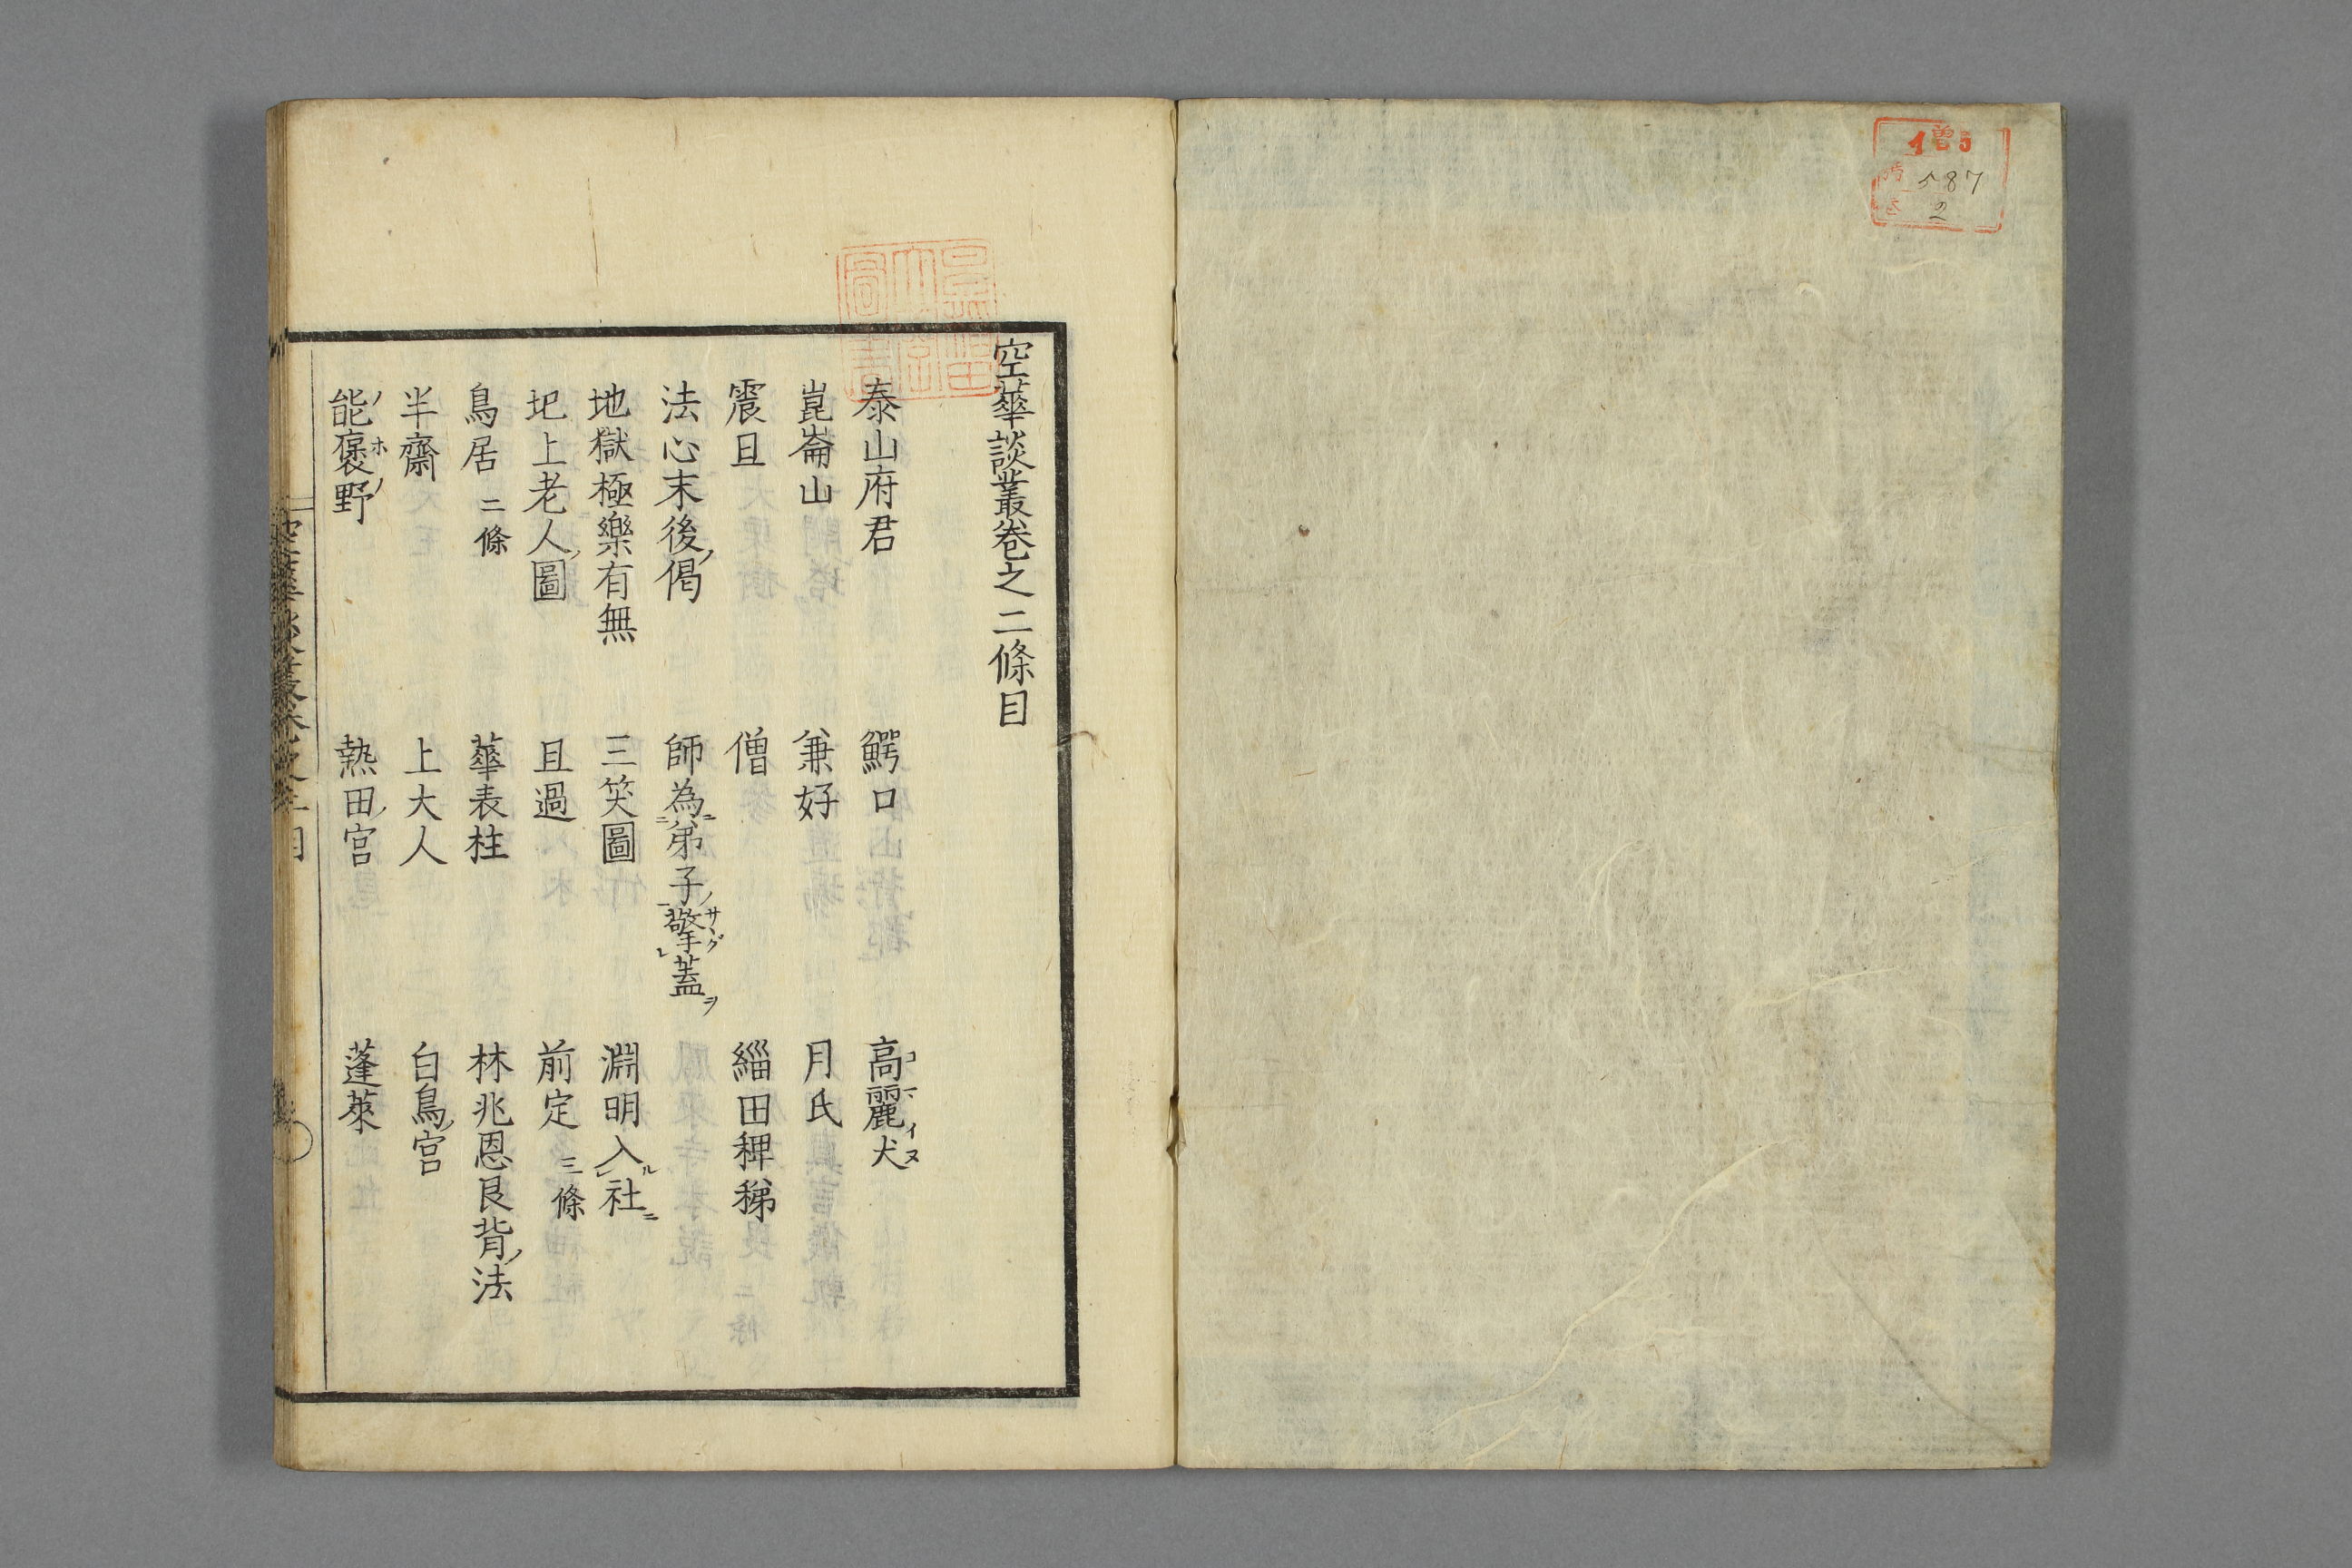 増5
587
2
空華談叢巻之二條目
泰山府君 鰐口 高麗犬
崑崙山 兼好 月氏
震旦 僧 緇田稗稊
法心末後ノ偈 師為ニ弟子ノ擎蓋ヲ
地獄極樂有無 三笑圖 淵明入ル社ニ
圯上老人ノ圖 且過 前定 三條
鳥居 二條 華表柱 林兆恩艮背ノ法
半齋 上大人 白鳥ノ宮
能褒野 熱田ノ宮 蓬萊